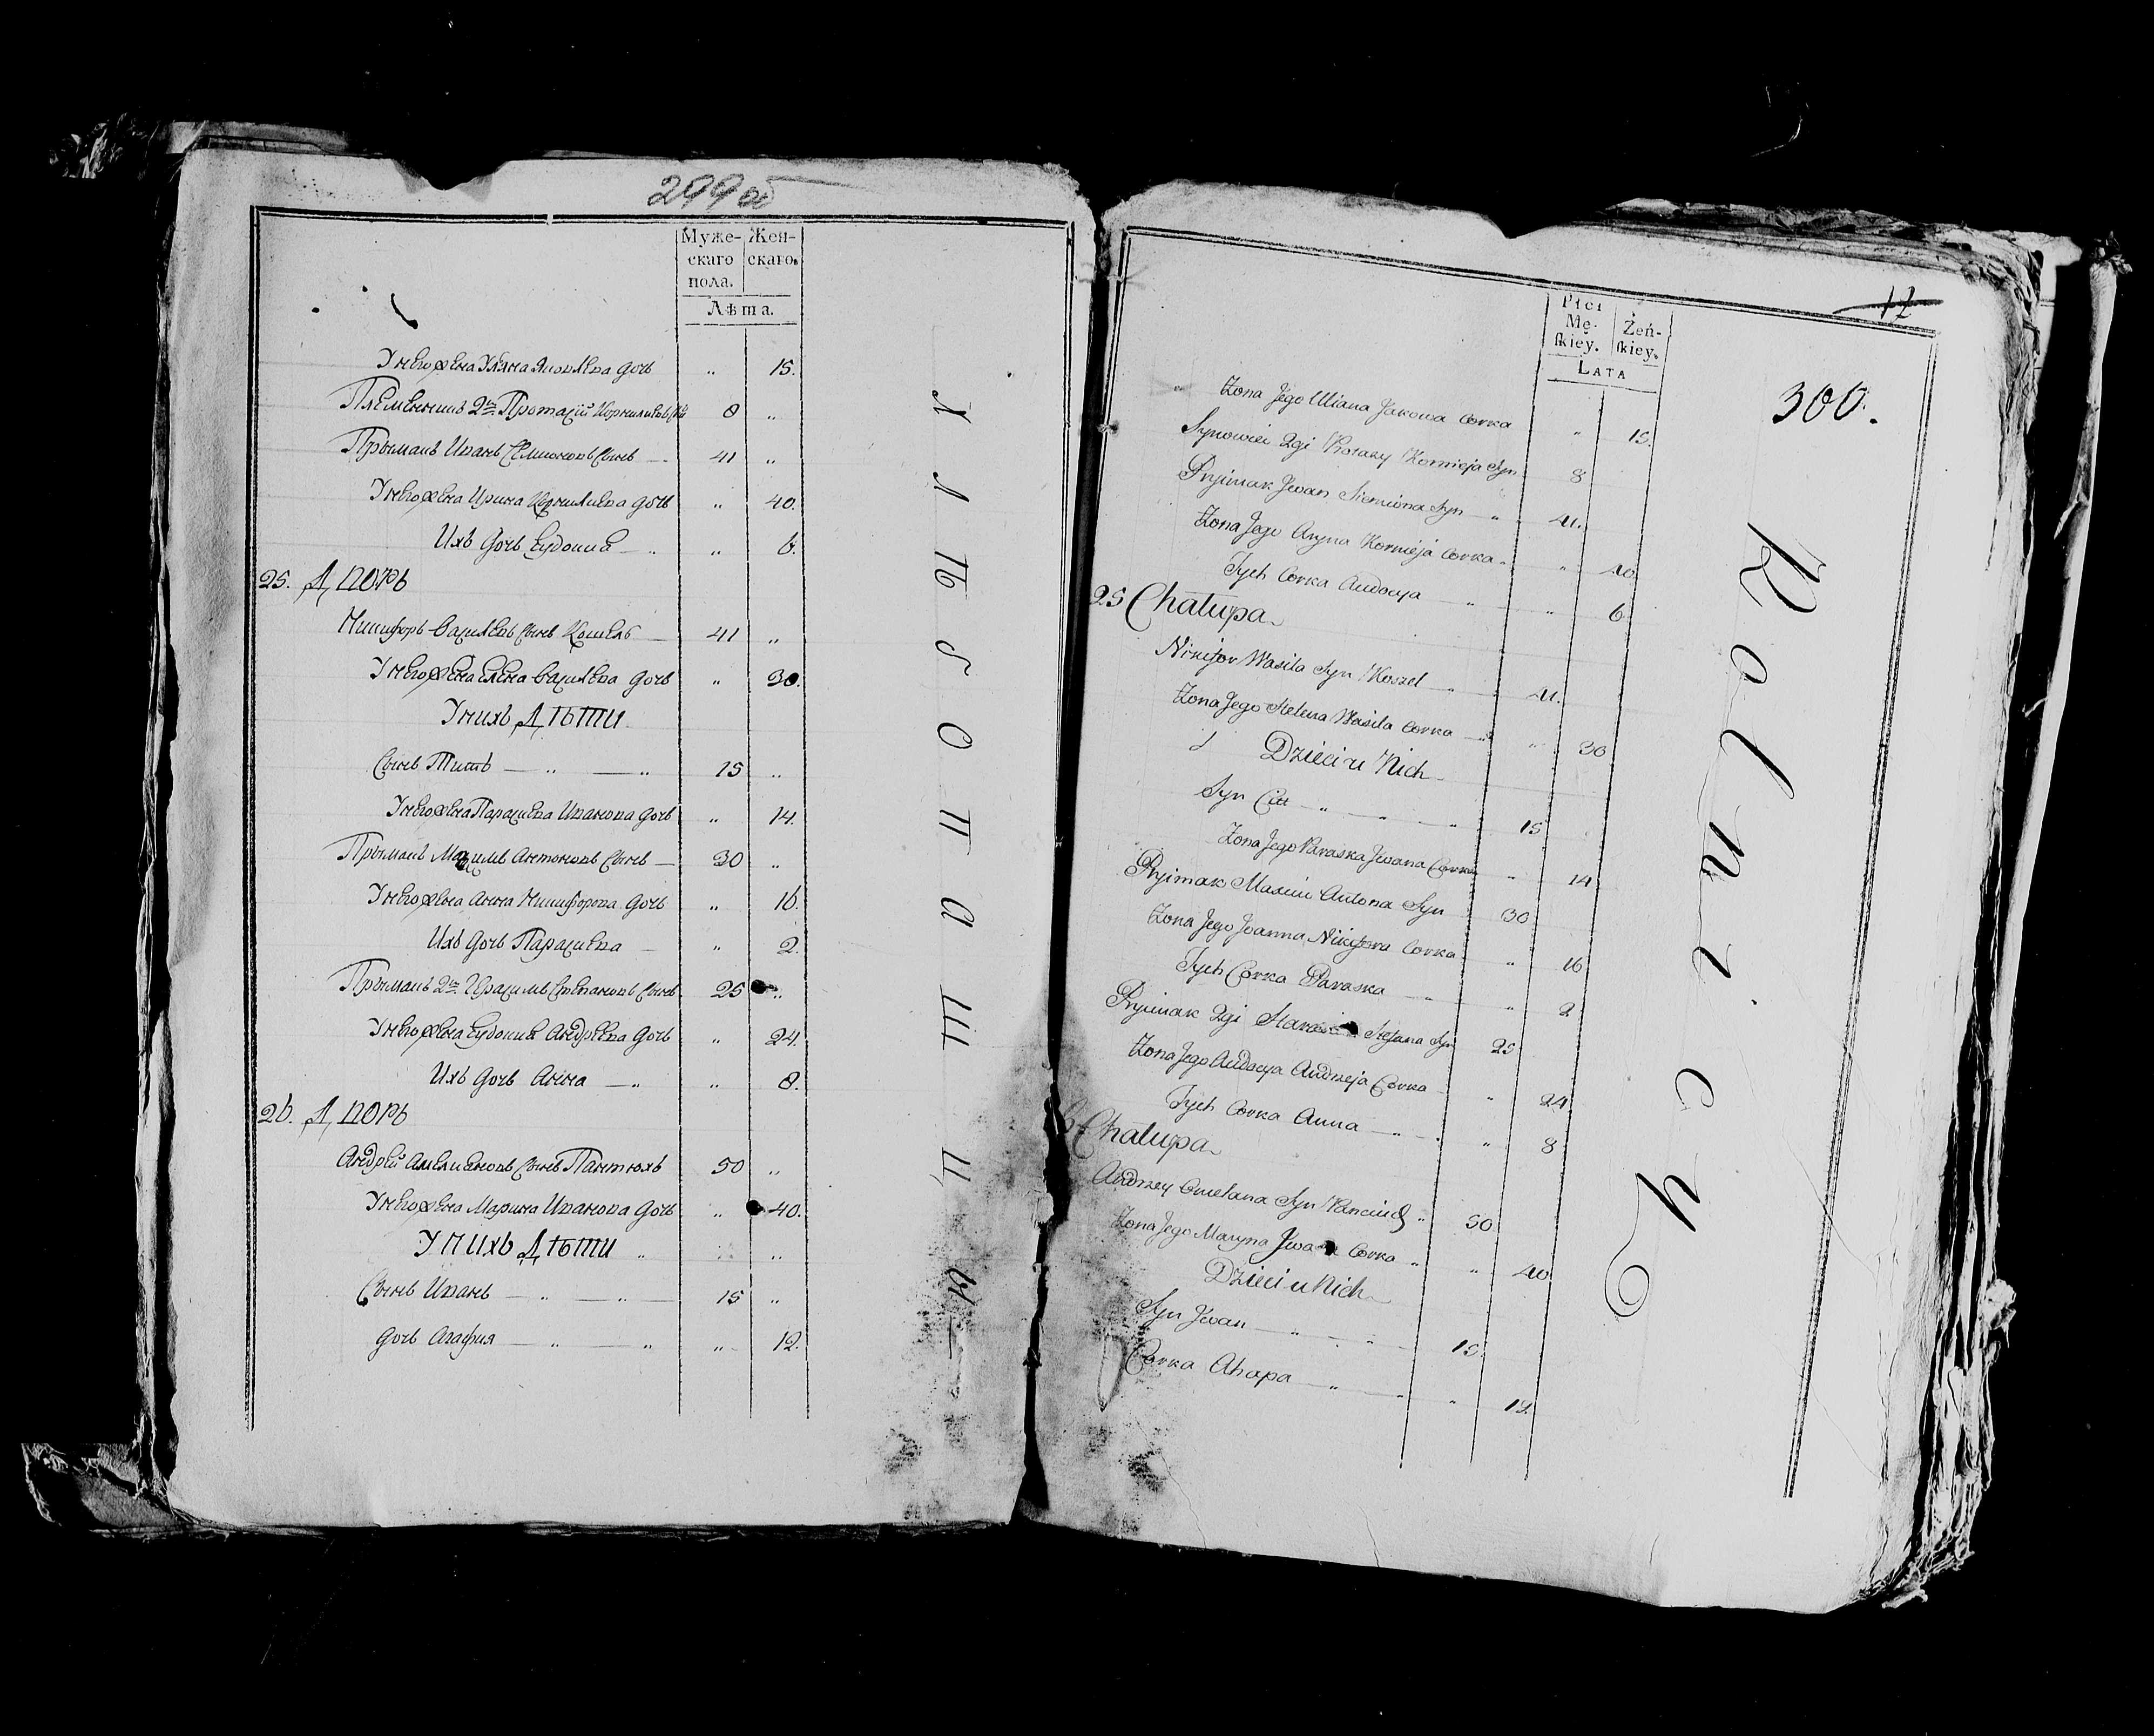 299 об
Муже- Жен-
скаго скаго.
пола.
Лѣта.
У него жена Уляна Яковлева дочь " 15.
Племянникъ 2й Протасій Корнилиевъ 8 "
Прымакъ Иванъ Семионовъ сынъ — 41 "
У него жена Ирина Корнилиева дочь " 40.
Ихъ дочь Еудокия — " " 6.
25. Дворъ
Никифоръ Василевъ сынъ Кошель — 41 "
У него жена Елена Василева дочь " 30.
У нихъ Дѣти
Сынъ Титъ — " — " 15 "
У него жена Парасцева Иванова дочь " 14.
Прымакъ Максимъ Антоновъ сынъ — 30 "
У него жена Анна Никифорова дочь " 16.
Ихъ дочь Парасцева — " 2.
Прымакъ 2й Герасимъ Степановъ сынъ 25 "
У него жена Еудокия Андреева дочь " 24.
Ихъ дочь Анна — " " 8.
26. Дворъ
Андрей Амелиановъ сынъ Пантюхъ 50 "
У него жена Марина Иванова дочь " 40.
У нихъ Дѣти " "
Сынъ Иванъ — " — " 15 "
дочь Агафия — " — " " 12.
17
Płci
Mę- Żeń-
skiey. skiey.
LATA
300.
Żona Jego Uliana Jakowa Corka " 15.
Synowiec 2gi Protazy Kornieja Syn 8
Pryimak Jwan Siemiona Syn — " 41.
Żona Jego Aryna Kornieja Corka " " 40.
Tych Corka Audocya — " " 6
25 Chałupa
Nikifor Wasila Syn Koszel — " 41.
Żona Jego Helena Wasila Corka — " " 30
Dzieci u Nich
Syn Cit — " — " — " 15
Żona Jego Paraska Jwana Corka " 14
Pryimak Maxim Antona Syn 30
Żona Jego Joanna Nikifora Corka " 16
Tych Corka Paraska — " " 2
Pryimak 2gi Stefana Syn 25
Żona Jego Audocya Andrzeja Corka " 24
Tych Corka Anna — " " 8
Chałupa
Andrzey Omelana Syn " 50
Żona Jego Maryna Jwana Corka " " 40
Dzieci u Nich
Syn Jwan — " — " 15.
Corka Ahapa — " — " " 12.
Rolnicy